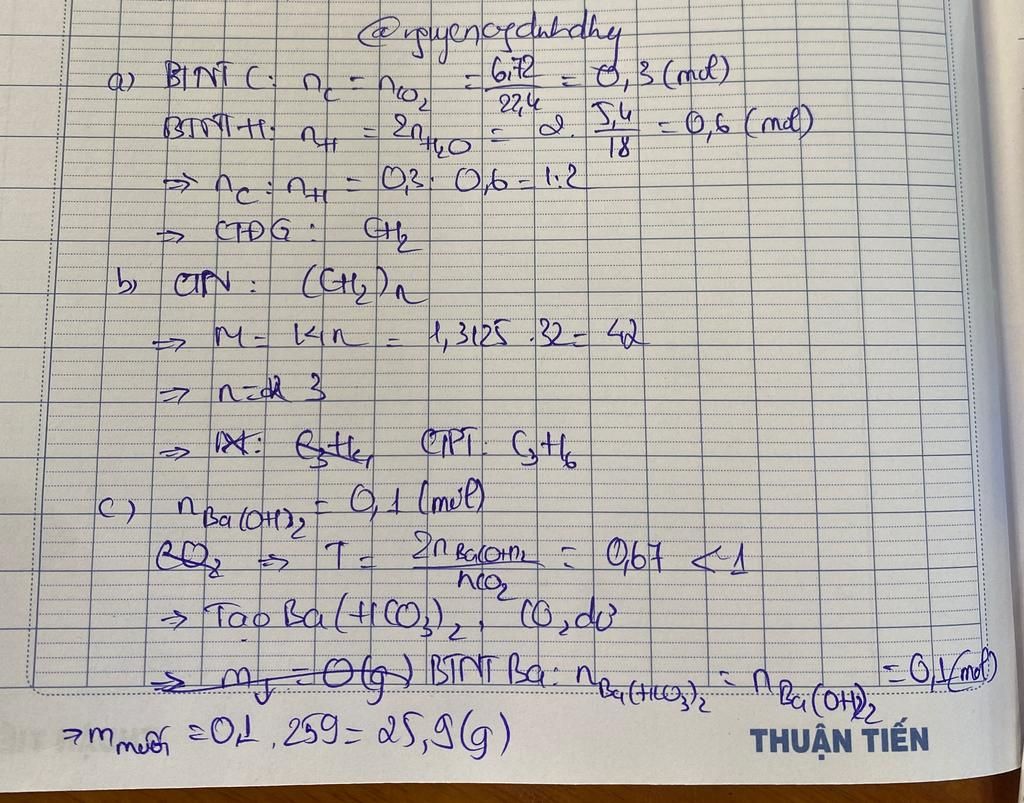 @nguyenngdinhdhy
a) BTNT C: n_C = n_CO₂ = 6,72/22,4 = 0,3 (mol)
BTNT H: n_H = 2n_H₂O = 2. 5,4/18 = 0,6 (mol)
⇒ n_C : n_H = 0,3 : 0,6 = 1:2
⇒ CTĐG : CH₂
b) CTN : (CH₂)n
⇒ M = 14n = 1,3125 . 32 = 42
⇒ n = 3
⇒ CTPT: C₃H₆
c) n_Ba(OH)₂ = 0,1 (mol)
CO₂ ⇒ T = 2n_Ba(OH)₂/nCO₂ = 0,67 < 1
⇒ Tạo Ba(HCO₃)₂, CO₂ dư
⇒ m↓ = 0(g) BTNT Ba: n_Ba(HCO₃)₂ = n_Ba(OH)₂ = 0,1 (mol)
⇒ m_muối = 0,1 . 259 = 25,9 (g)
THUẬN TIẾN